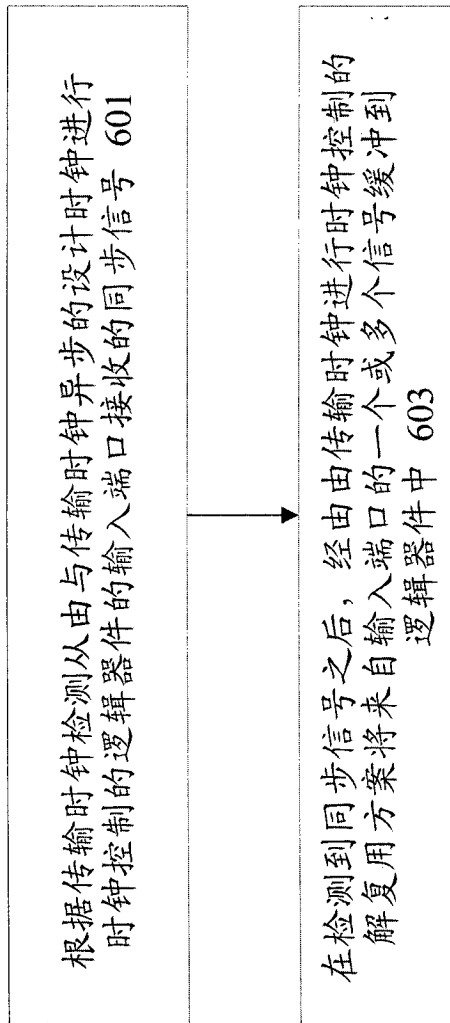 根据传输时钟检测从由与传输时钟异步的设计时钟进行
时钟控制的逻辑器件的输入端口接收的同步信号 601
在检测到同步信号之后，经由由传输时钟进行时钟控制的
解复用方案将来自输入端口的一个或多个信号缓冲到
逻辑器件中 603